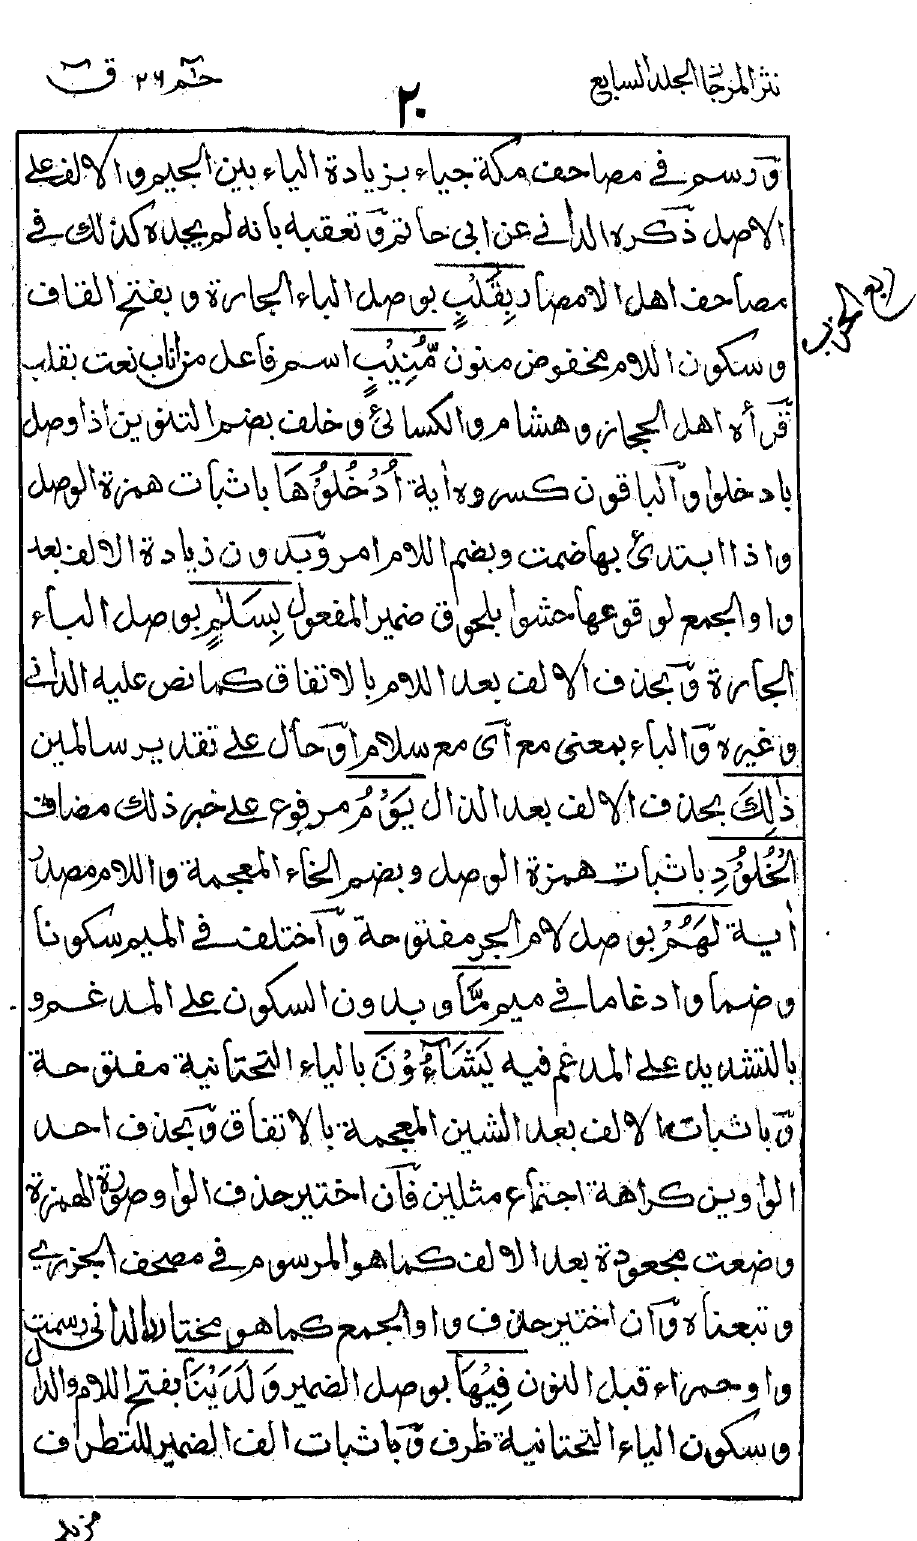 نثر المرجان الجلد السابع
٢٠
حٰم ٢٦ ق
وَرسم فى مصاحف مكة جياء بزيادة الياء بين الجيم والالف على
الاصل ذَكره الدانى عن ابى حاتم وَتعقبه بانه لم يجده كذلك فى
مصاحف اهل الامصار بِقَلْبٍ بوصل الباء الجارة وبفتح القاف
وسكون اللام مخفوض منون مُّنِيْبٍ اسم فاعل من اناب نعت بقلب
قَرأه اهل الحجاز وهشام والكسائى وخلف بضم التنوين اذا وصل
بادخلوا وَالباقون كسروه اٰية اُدْخُلُوْهَا باثبات همزة الوصل
واذا ابتدئ بها ضمت وبضم اللام امر وَبدون زيادة الالف بعد
واو الجمع لوقوعها حشوا بلحوق ضمير المفعول بِسَلٰمٍ بوصل الباء
الجارة وَبحذف الالف بعد اللام بالاتفاق كما نص عليه الدانى
وغيره وَالباء بمعنى مع اَى مع سلام اوَحال على تقدير سالمين
ذٰلِكَ بحذف الالف بعد الذال يَوْمُ مرفوع على خبر ذلك مضاف
الْخُلُوْدِ باثبات همزة الوصل وبضم الخاء المعجمة واللام مصدر
اٰية لَهُمْ بوصل لام الجر مفتوحة وَاختلف فى الميم سكونا
وضما وادغاما فى ميم مَّا وبدون السكون على المدغم و
بالتشديد على المدغم فيه يَشَآءُوْنَ بالياء التحتانية مفتوحة
وَباثبات الالف بعد الشين المعجمة بالاتفاق وَبحذف احد
الواوين كراهة اجتماع مثلين فَان اختير حذف الواو صورة الهمزة
وضعت مجعودة بعد الالف كما هو المرسوم فى مصحف الجزرى
وتبعناه وَان اختير حذف واو الجمع كما هو مختار الدانى رسمت
واو حمراء قبل النون فِيْهَا بوصل الضمير وَلَدَيْنَا بفتح اللام والدال
وسكون الياء التحتانية ظرف وَباثبات الف الضمير للتطرف
ربع الحزب
مزيد